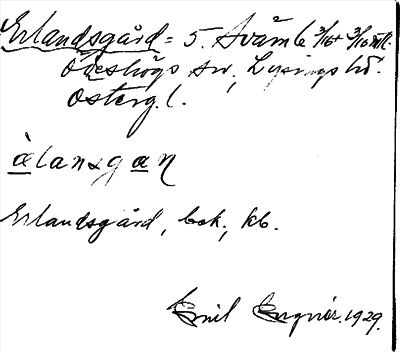 Erlandsgård = 5. Svämb 3/16+ 3/16 mtl.
Ödeshögs sn, Lysings hd.
Österg. l.
àlansgan
Erlandsgård, bok., kb.
Emil Enqvist. 1929.